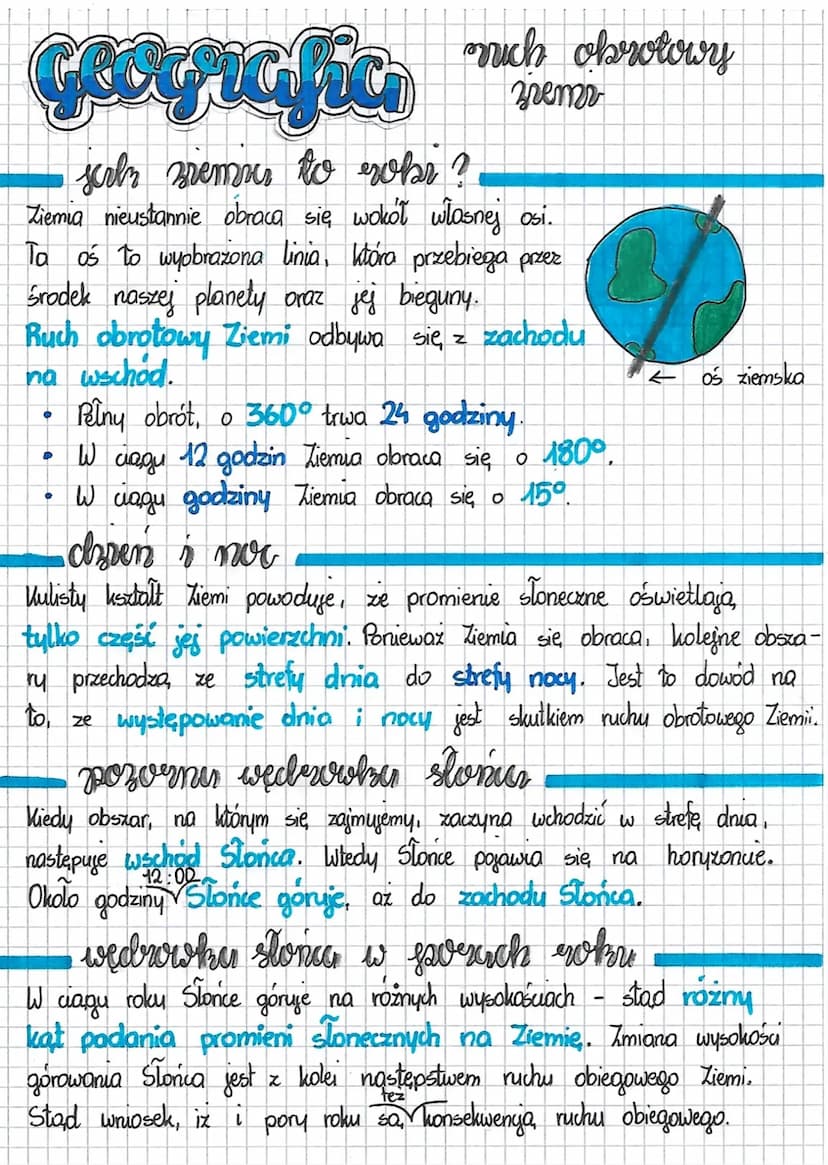 Geografia
ruch obrotowy
ziemi
jak ziemia to robi?
Ziemia nieustannie obraca się wokół własnej osi.
Ta oś to wyobrażona linia, która przebiega przez
środek naszej planety oraz jej bieguny.
Ruch obrotowy Ziemi odbywa się z zachodu
na wschód.
← oś ziemska
• Pełny obrót, o 360° trwa 24 godziny.
• W ciągu 12 godzin Ziemia obraca się o 180°.
• W ciągu godziny Ziemia obraca się o 15°.
dzień i noc
Kulisty kształt Ziemi powoduje, że promienie słoneczne oświetlają
tylko część jej powierzchni. Ponieważ Ziemia się obraca, kolejne obsza-
ry przechodzą ze strefy dnia do strefy nocy. Jest to dowód na
to, ze występowanie dnia i nocy jest skutkiem ruchu obrotowego Ziemii.
pozorna wędrówka słońca
Kiedy obszar, na którym się zajmujemy, zaczyna wchodzić w strefę dnia,
następuje wschód Słońca. Wtedy Słońce pojawia się na horyzoncie.
Około godziny 12:00 Słońce góruje, aż do zachodu Słońca.
wędrówka słońca w porach roku
W ciągu roku Słońce góruje na różnych wysokościach - stąd różny
kąt padania promieni słonecznych na Ziemię. Zmiana wysokości
górowania Słońca jest z kolei następstwem ruchu obiegowego Ziemi.
Stąd wniosek, iż i pory roku są też konsekwencją ruchu obiegowego.